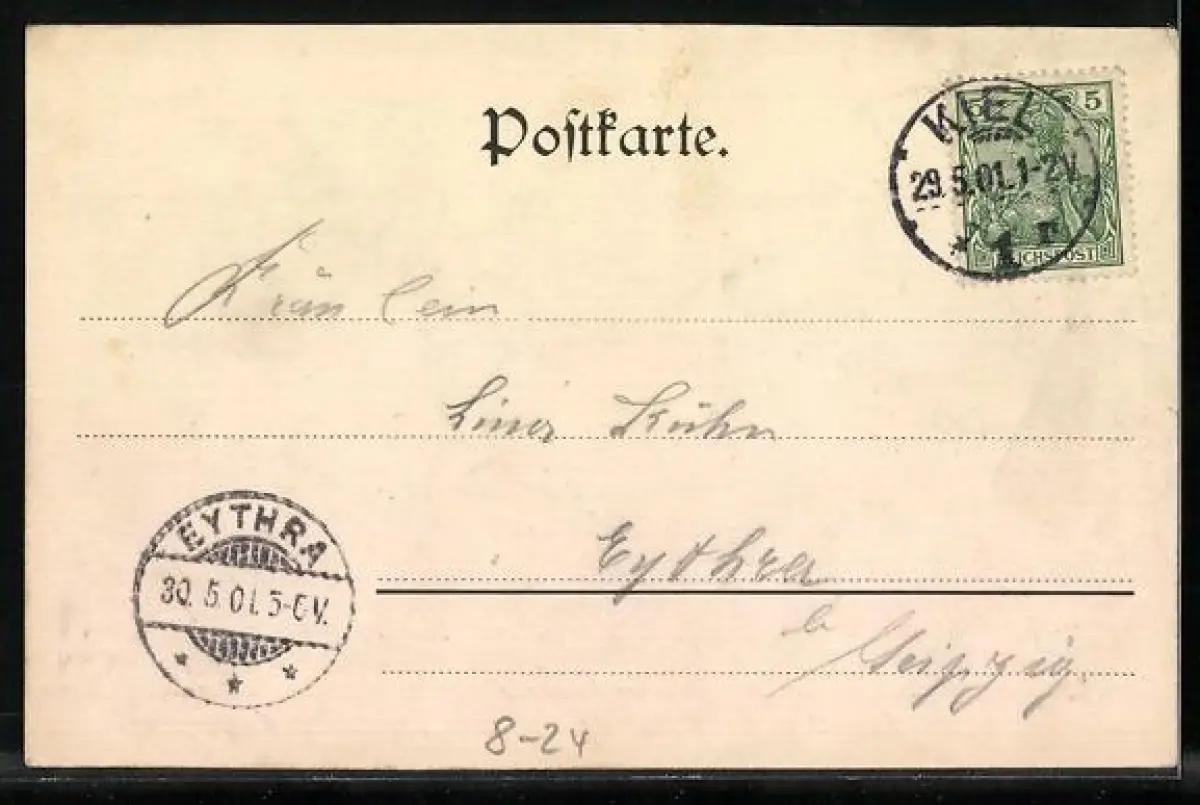 Postkarte.
5
KIEL
29.5.01.1-2V.
* 1 r
REICHSPOST
Fräulein
Kühn
Eythra
b Leipzig.
EYTHRA
30.5.01.5-6V.
* * *
8-24